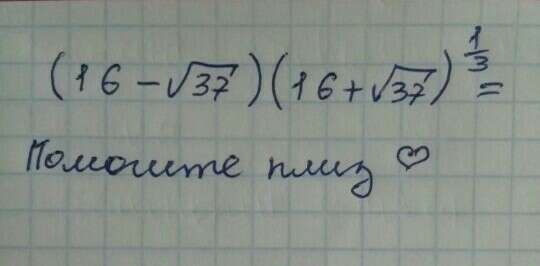 (16-√37)(16+√37)^(1/3) =
Помогите плиз ♡